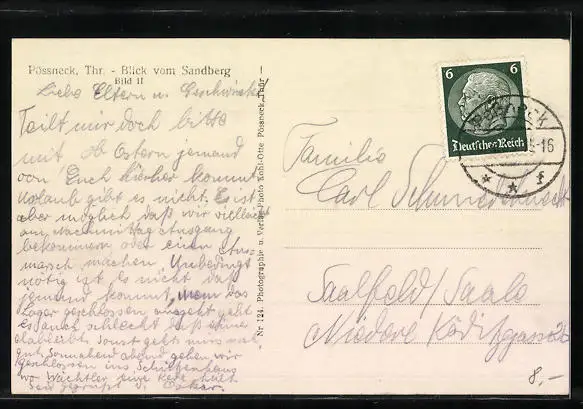 Pössneck, Thr. - Blick vom Sandberg
Bild II
Liebe Eltern u. Geschwister!
Teilt mir doch bitte
mit ob Ostern jemand
von Euch hierher kommt,
Urlaub gibt es nicht. Es ist
aber möglich daß wir vielleicht
am Nachmittag Ausgang
bekommen oder einen Aus-
marsch machen. Unbedingt
nötig ist es nicht daß
jemand kommt, wenn das
Lager geschlossen ausgeht geht
es auch schlecht daß einer
dableibt. Sonst geht's mir noch
gut. Sonnabend abend gehen wir
geschlossen ins Schützenhaus
wo Wächtler eine Rede hält.
Seid gegrüßt v. Oskar.
Nr 124. Photographie u. Verlag Photo Kohl-Otte Pössneck, Thür
6 6
Deutsches Reich
-16
f
Familie
Carl Schmiedeknecht
Saalfeld/Saale
Niedere Köditzgasse
8,-